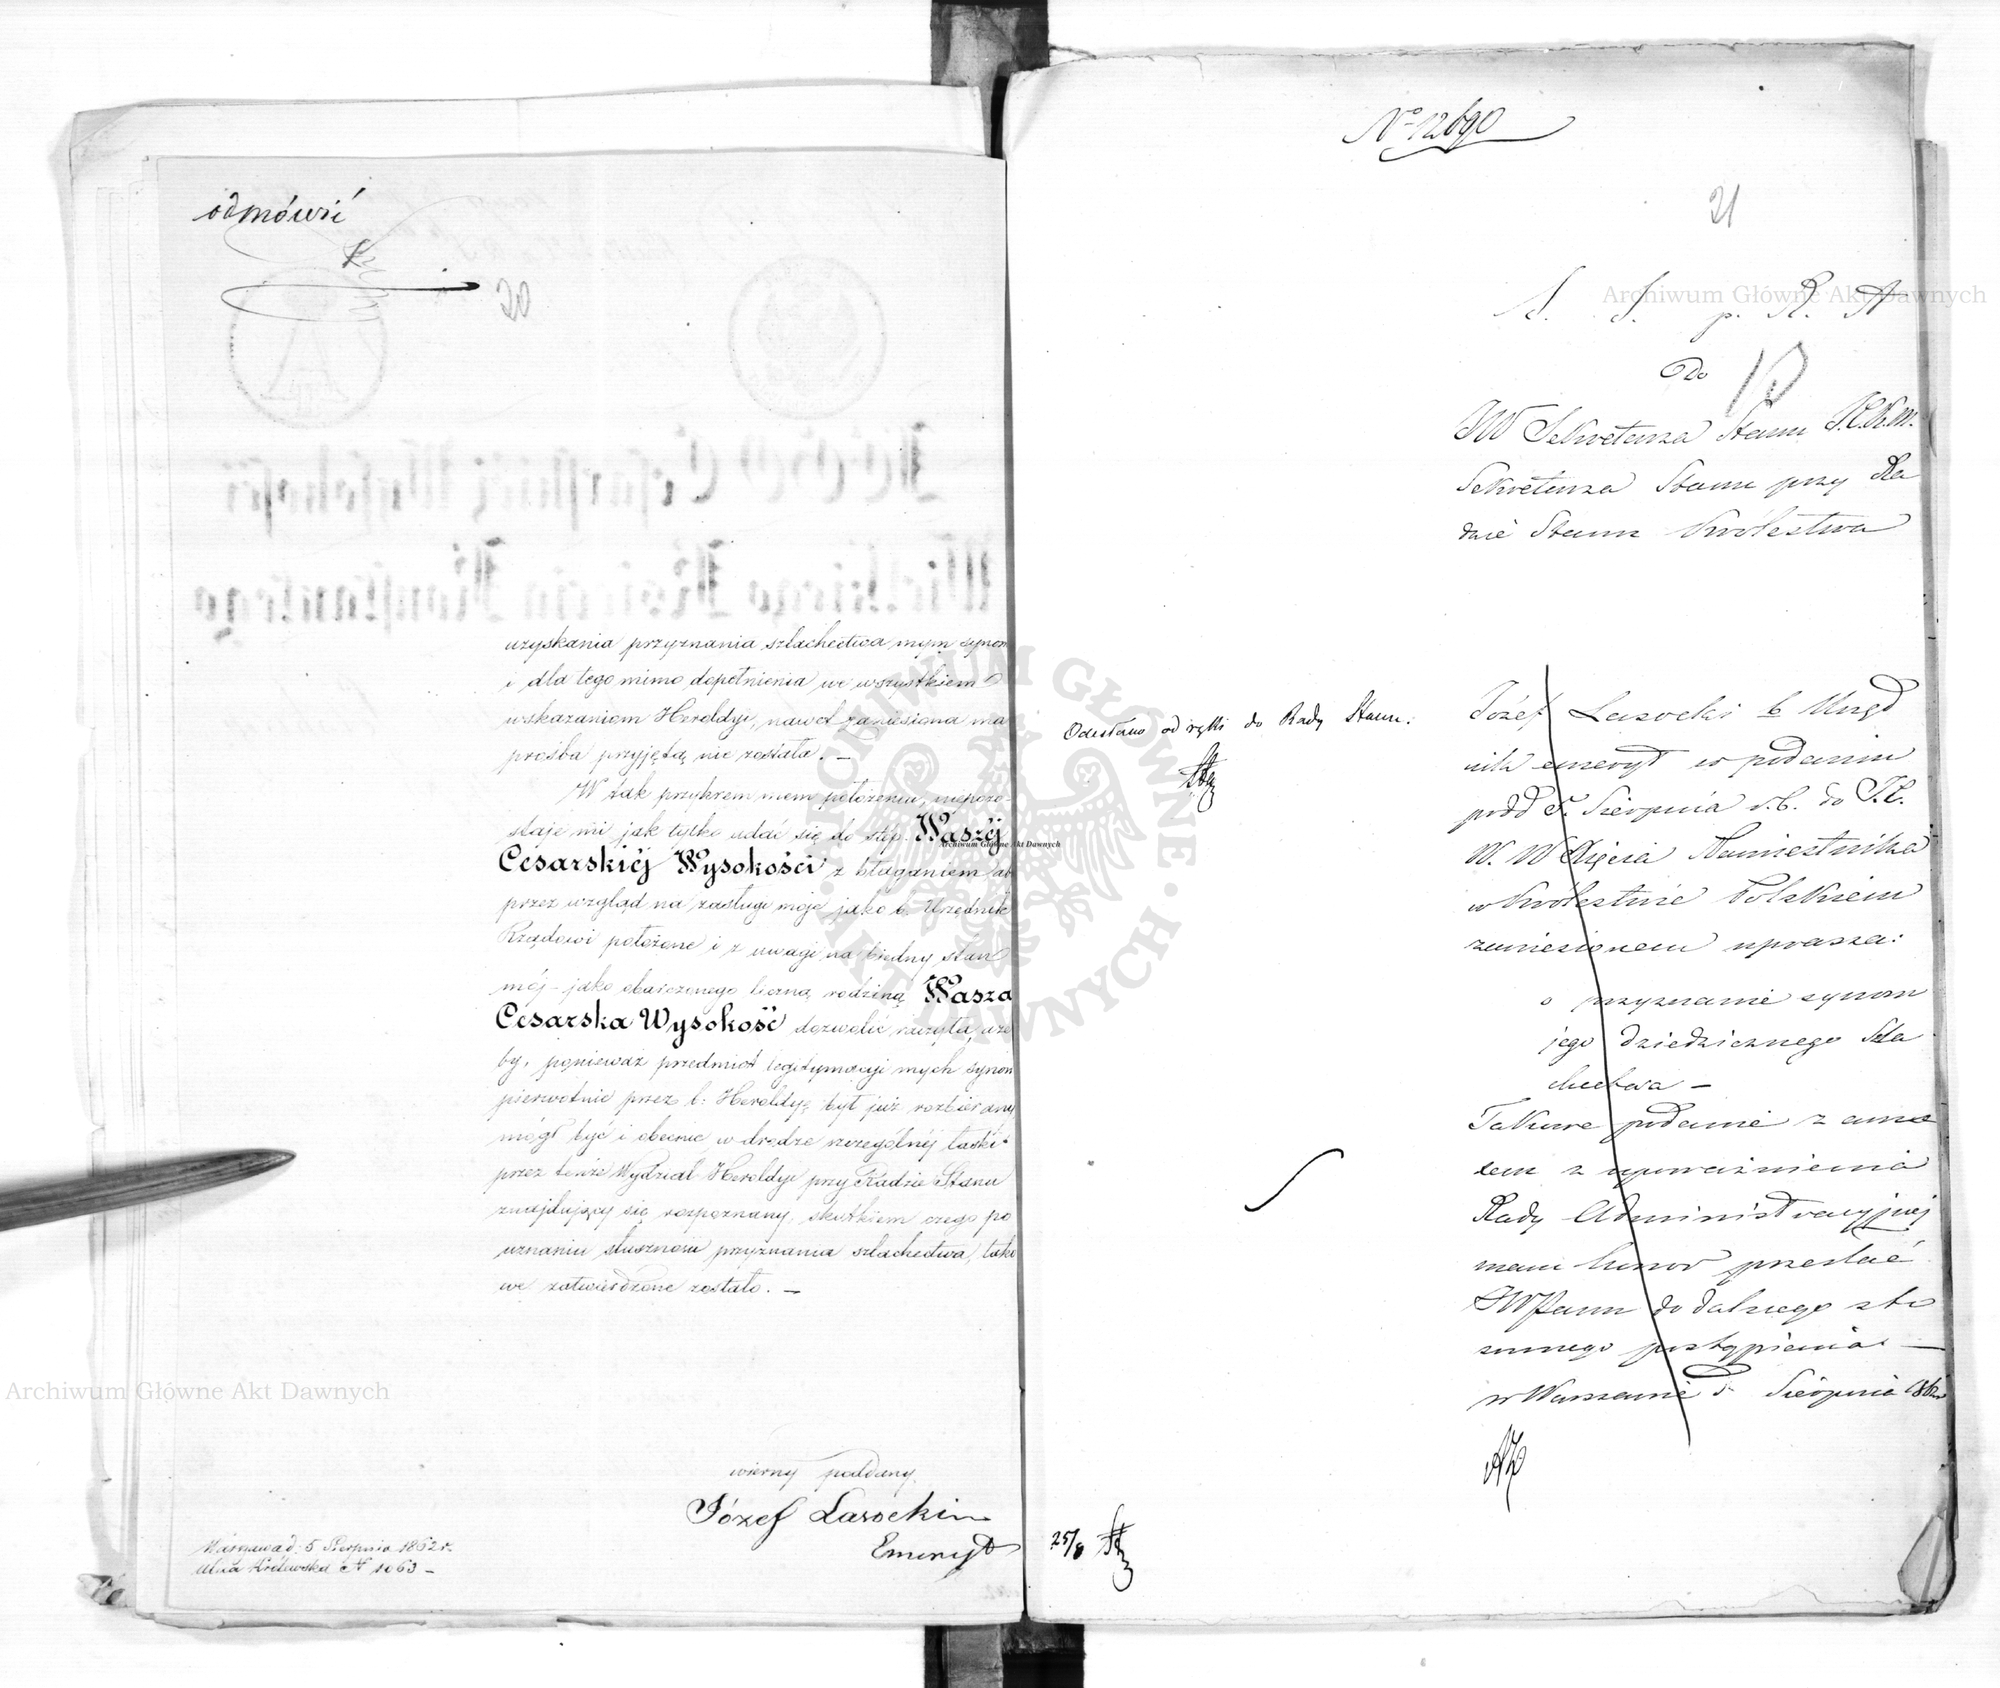 odmówić
20
uzyskania przyznania szlachectwa mym synom
i dla tego mimo dopełnienia we wszystkiem
wskazaniom Heroldyi, nawet zaniesiona ma
prośba przyjętą nie została. —
W tak przykrem mem położeniu, niepozo-
staje mi jak tylko udać się do stóp Waszéj
Cesarskiéj Wysokości z błaganiem ab
przez wzgląd na zasługi moje jako b. Urzędnik
Rządowi położone i z uwagi na biedny stan
mój – jako obarczonego liczną rodziną Wasza
Cesarska Wysokość dozwolić raczyła, aże
by, ponieważ przedmiot legitymacyi mych synów
pierwotnie przez b: Heroldyą był już rozbierany
mógł być i obecnie w drodze szczególnéj łaski
przez tenże Wydział Heroldyi przy Radzie Stanu
znajdujący się rozpoznany, skutkiem czego po
uznaniu słuszności przyznania szlachectwa, tako
we zatwierdzone zostało. —
wierny poddany
Józef Łasocki
Emeryt
Warszawa d: 5 Sierpnia 1862 r.
ulica Królewska N 1063 –
No 12690
21
S. S. p. R. A
Do
JW Sekretarza Stanu J.C.K.M.
Sekretarza Stanu przy Ra
dzie Stanu Królestwa
Odesłano od ręki do Rady Stanu.
Józef Łasocki b Urzęd
nik emeryt w podaniu
pod d 5 Sierpnia r.b. do J.C.
W. W Xięcia Namiestnika
w Królestwie Polskiem
zaniesionem uprasza:
o przyznanie synom
jego dziedzicznego Szla
chectwa –
Takowe podanie z anne
xem z upoważnienia
Rady Administracyjnej
mam honor przesłać
JWPanu do dalszego sto
sownego postąpienia —
w Warszawie d Sierpnia 1862
25/8
Archiwum Główne Akt Dawnych
Archiwum Główne Akt Dawnych
Archiwum Główne Akt Dawnych
ARCHIWUM GŁÓWNE AKT DAWNYCH